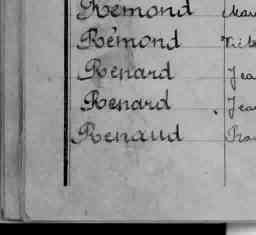 Rémond
Rémond
Renard Jea
Renard Jea
Renaud